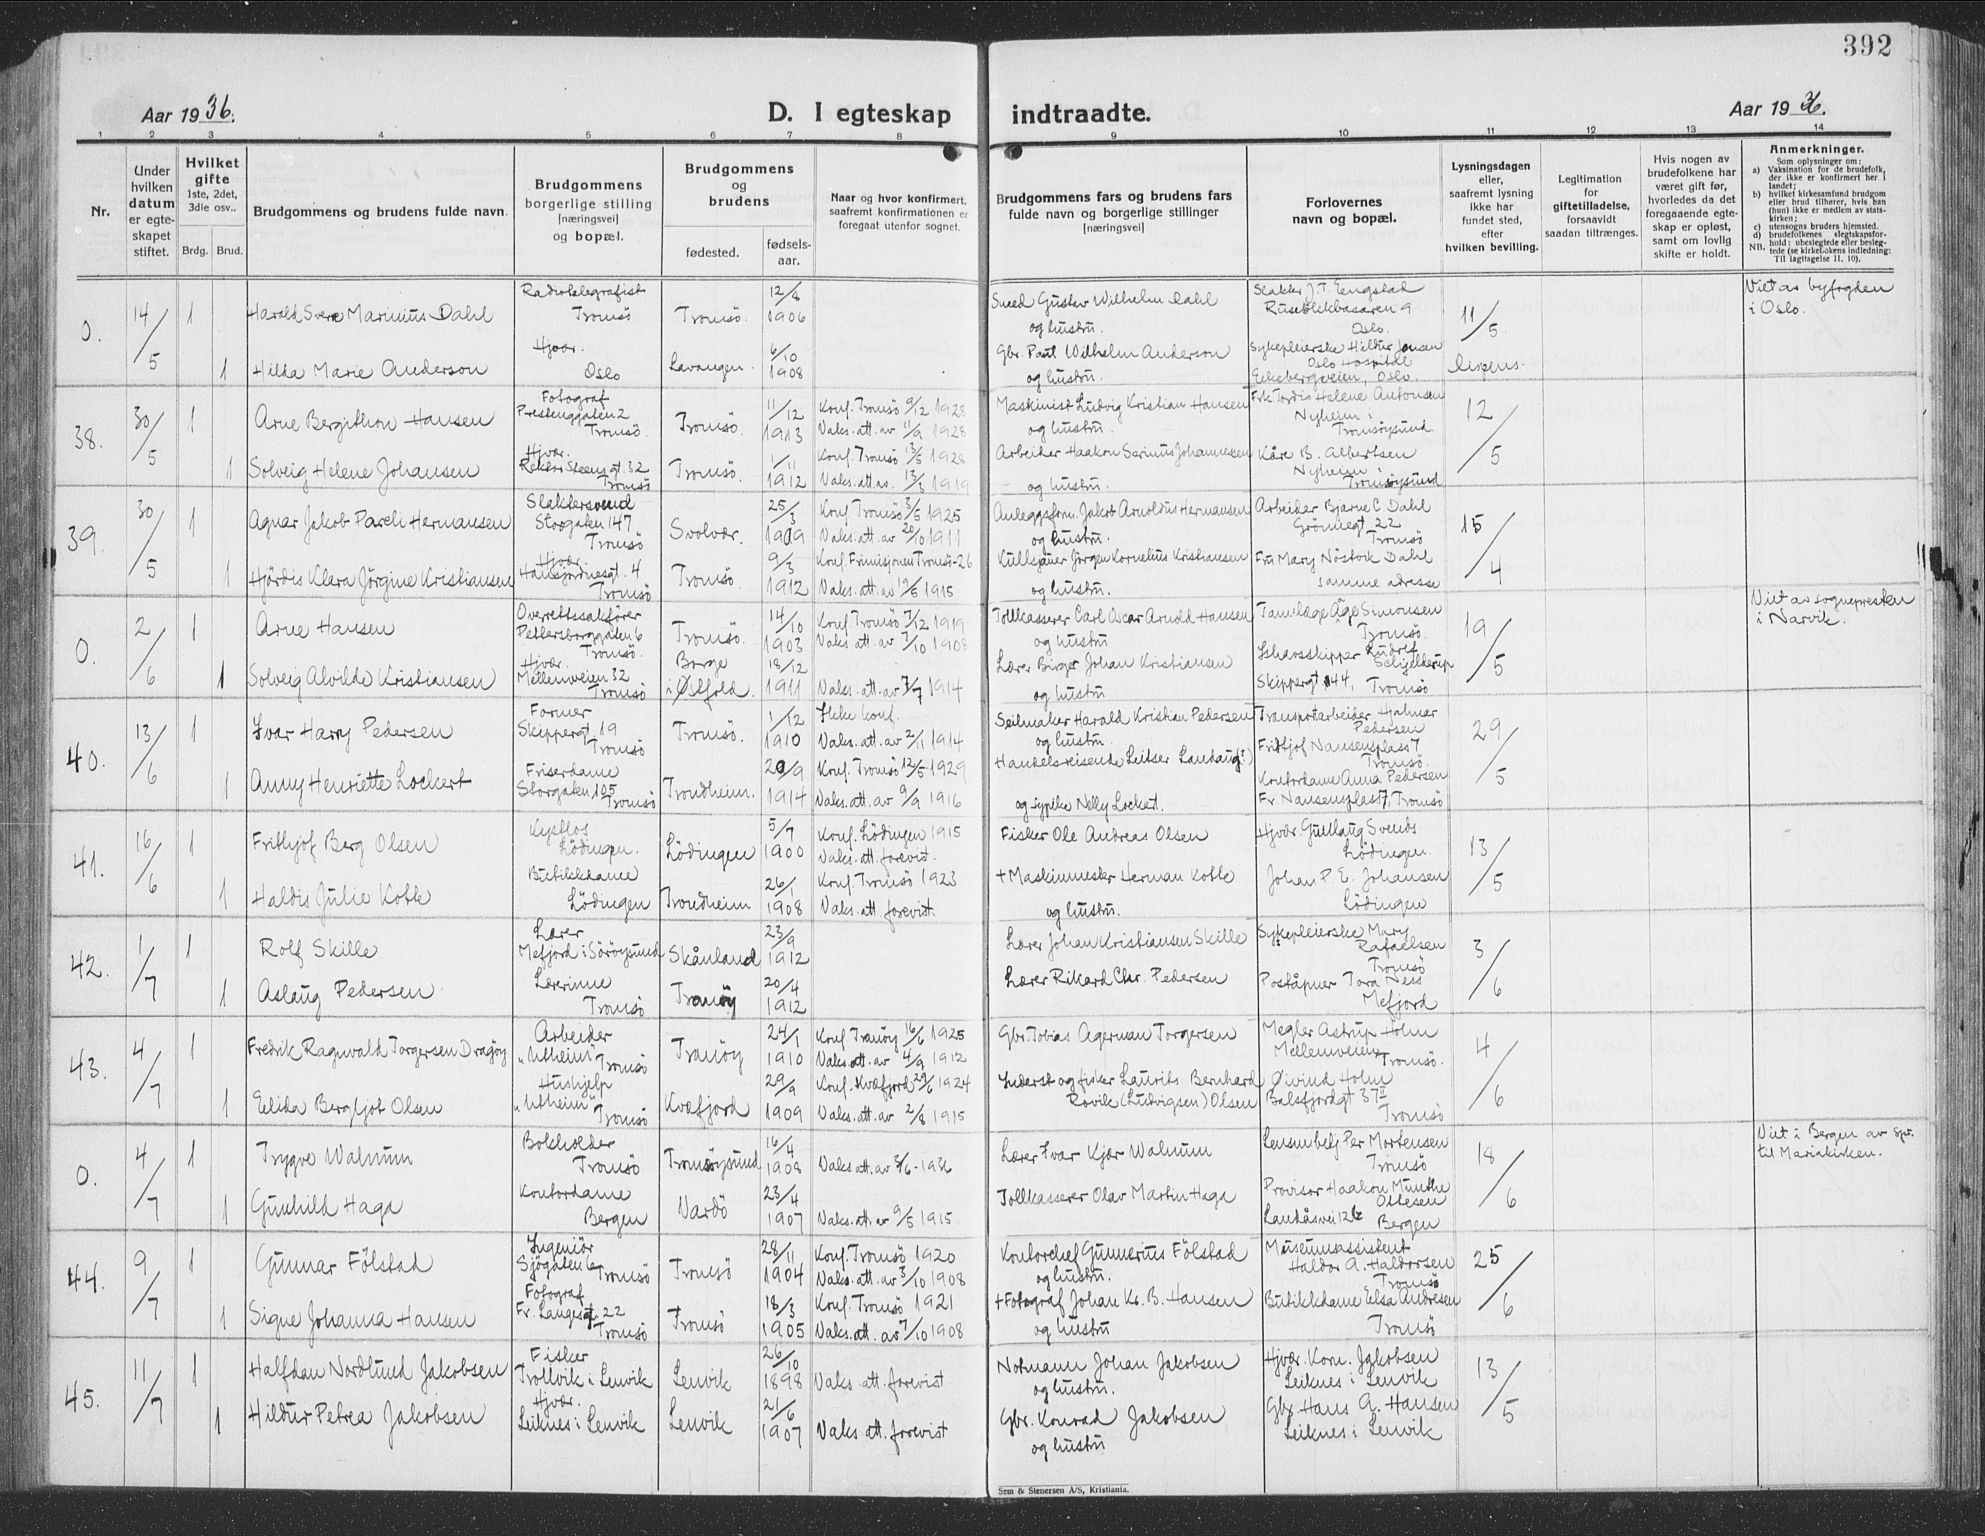 392
Aar 1936.
D. I egteskap indtraadte.
Aar 1936.
1 2 3 4 5 6 7 8 9 10 11 12 13 14
Nr.
Under hvilken datum er egteskapet stiftet.
Hvilket gifte 1ste, 2det, 3die osv..
Brdg. Brud.
Brudgommens og brudens fulde navn.
Brudgommens borgerlige stilling [næringsvei] og bopæl.
Brudgommens og brudens
fødested. fødselsaar.
Naar og hvor konfirmert, saafremt konfirmationen er foregaat utenfor sognet.
Brudgommens fars og brudens fars fulde navn og borgerlige stillinger [næringsvei]
Forlovernes navn og bopæl.
Lysningsdagen eller, saafremt lysning ikke har fundet sted, efter hvilken bevilling.
Legitimation for giftetilladelse, forsaavidt saadan tiltrænges.
Hvis nogen av brudefolkene har været gift før, hvorledes da det foregaaende egteskap er opløst, samt om lovlig skifte er holdt.
Anmerkninger.
Som oplysninger om:
a) Vaksination for de brudefolk, der ikke er konfirmert her i landet;
b) hvilket kirkesamfund brudgom eller brud tilhører, hvis han (hun) ikke er medlem av statskirken;
c) utensogns bruders hjemsted.
d) brudefolkenes slegtskapsforhold: ubeslegtede eller beslegtede (se kirkebokens indledning:
NB. Til iagttagelse II. 10).
0. 14/5 1 Harald Sverre Marinius Dahl Radiotelegrafist Tromsö Tromsö. 12/8 1906 Smed Gustav Wilhelm Dahl og hustru. Slakter J. T. Engstad Ruseløkbasaren 9 Oslo. 11/5 Viet av byfogden i Oslo.
1 Hilda Marie Anderson Hjvær. Oslo Lavangen. 6/10 1908 Gbr. Paul Wilhelm Anderson og hustru. Sykepleierske Hildur Jensen Oslo Hospital Ekebergveien, Oslo. Dispens.
38. 30/5 1 Arne Bergithon Hansen Fotograf Prestenggaten 2 Tromsö. Tromsö. 11/12 1913 Konf. Tromsö 9/12 1928 Vaks. att. av 11/9 1928 Maskinist Ludvig Kristian Hansen og hustru. Frk. Tordis Helene Antonsen Nyheim i Tromsöysund 12/5
1 Solveig Helene Johansen Hjvær. Rektor Steensgt. 32 Tromsö Tromsö. 1/11 1912 Konf. Tromsö 13/5 1928 Vaks. att. av. 13/8 1919 Arbeider Haakon Serinus Johannessen og hustru. Kåre B. Albertsen Nyheim i Tromsöysund
39. 30/5 1 Agnar Jakob Pareli Hermansen Slaktersvend Storgaten 147 Tromsö Svolvær. 25/3 1909 Konf. Tromsö 3/5 1925 Vaks. att. av 20/10 1911 Anleggsform. Jakob Arnoldus Hermansen og hustru. Arbeider Bjarne C Dahl Grönnegt 22 Tromsö 15/4
1 Hjördis Klara Jörgine Kristiansen Hjvær. Hansjordnesgt. 4 Tromsö Tromsö. 9/3 1912 Konf. Frimisjonen Tromsö - 26 Vaks. att. av 19/5 1915 Kullsjauer Jörgen Kornelius Kristiansen og hustru. Fru Mary Nöstvik Dahl samme adresse
0. 2/6 1 Arne Hansen Overettssakförer Petersborggaten 6 Tromsö. Tromsö. 14/10 1903 Konf. Tromsö 7/12 1919 Vaks. att. av 7/10 1908 Tollkasserer Carl Oscar Arnold Hansen og hustru Tannlæge Åge Simonsen Tromsö. 19/5 Viet av sognepresten i Narvik.
1 Solveig Alvilde Kristiansen Hjvær. Mellemveien 32 Tromsö Borge i Østfold. 18/12 1911 Vaks. att. av 7/7 1914 Lærer Birger Johan Kristiansen og hustru Ishavsskipper Rudolf Schjelderup Skippergt. 44, Tromsö
40. 13/6 1 Ivar Harry Pedersen Former Skippergt. 19 Tromsö Tromsö. 1/12 1910 Ikke konf. Vaks. att. av 2/11 1914 Seilmaker Harald Kristian Pedersen og hustru. Transportarbeider Hjalmar Pedersen Fridtjof Nansensplass 7 Tromsö. 29/5
1 Anny Henriette Lockert Friserdame Storgaten 105 Tromsö Trondheim. 20/9 1914 Konf. Tromsö 12/5 1929 Vaks. att. av 9/9 1916 Handelsreisende Leitser Landau (?) og frk. Nelly Locket. Kontordame Anna Pedersen Fr. Nansensplass 7, Tromsö
41. 16/6 1 Frithjof Berg Olsen Kystlos Lödingen. Lödingen 5/7 1900 Konf. Lödingen 1915 Vaks. att. forevist. Fisker Ole Andreas Olsen Hjvær. Gunlaug Svends Lödingen. 13/5
1 Haldis Julie Kotte Butikkdame Lödingen Trondheim 26/1 1908 Konf. Tromsö 1923 Vaks. att. forevist. + Maskinmester Herman Kotte og hustru. Johan P. E. Johansen Lödingen
42. 1/7 1 Rolf Skille Lærer Mefjord i Söröysund Skånland 23/9 1912 Lærer Johan Kristiansen Skille Sykepleierske Mary Rafaelsen Tromsö 3/6
1 Aslaug Pedersen Lærerinne Tromsö Tranöy 20/4 1912 Lærer Rikard Chr. Pedersen Poståpner Tora Ness Mefjord
43. 4/7 1 Fredrik Ragnvald Torgersen Dragöy Arbeider "Utheim" Tromsö Tranöy 24/1 1910 Konf Tranöy 16/6 1925 Vaks. att. av 4/9 1912 Gbr. Tobias Agerman Torgersen Megler Astrup Holm Mellemveien Tromsö. 4/6
1 Elida Bergljot Olsen Hushjelp "Utheim" Tromsö Kvæfjord 29/9 1909 Konf. Kvæfjord 29/6 1924 Vaks. att. av 2/8 1915 Inderst og fisker Laurits Bernhard Rovik (Ludvigsen) Olsen Öivind Holm Balsfjordgt 37 II Tromsö
0. 4/7 1 Trygve Walnum Bokholder Tromsö Tromsöysund 16/4 1908 Vaks att. av 3/6 - 1936 Lærer Ivar Kjær Walnum Lensm.betj Per Mortensen Tromsö 18/6 Viet i Bergen av spr. til Mariakirken.
1 Gunhild Haga Kontordame Bergen Vardö 23/4 1907 Vaks. att. av 9/5 1915. Tollkasserer Olav Martin Haga Provisor Haakon Munthe Ottesen Landåsvei 12 Bergen
44. 9/7 1 Gunnar Fölstad Ingeniör Sjögaten 6 Tromsö Tromsö 28/11 1904 Konf. Tromsö 1920 Vaks. att. av 3/10 1908 Kontorchef Gunnerius Fölstad og hustru. Museumsassistent Haldor A. Haldorsen Tromsö 25/6
1 Signe Johanna Hansen Fotograf Fr. Langesgt. 22 Tromsö Tromsö 18/3 1905 Konf. Tromsö 1921 Vaks. att. av 7/10 1908 + Fotograf Johan Kr. B. Hansen og hustru Butikkdame Elsa Andresen Tromsö
45. 11/7 1 Halfdan Nordlund Jakobsen Fisker Trollvik i Lenvik Lenvik 26/10 1898 Vaks. att. forevist Notmann Johan Jakobsen og hustru. Hjvær. Korn. Jakobsen Leiknes i Lenvik 13/5
1 Hildur Petrea Jakobsen Hjvær. Leiknes i Lenvik Lenvik 21/6 1907 Vaks att. forevist Gbr. Konrad Jakobsen og hustru Gbr. Hans A. Hansen Leiknes i Lenvik
Sem & Stenersen A/S, Kristiania.